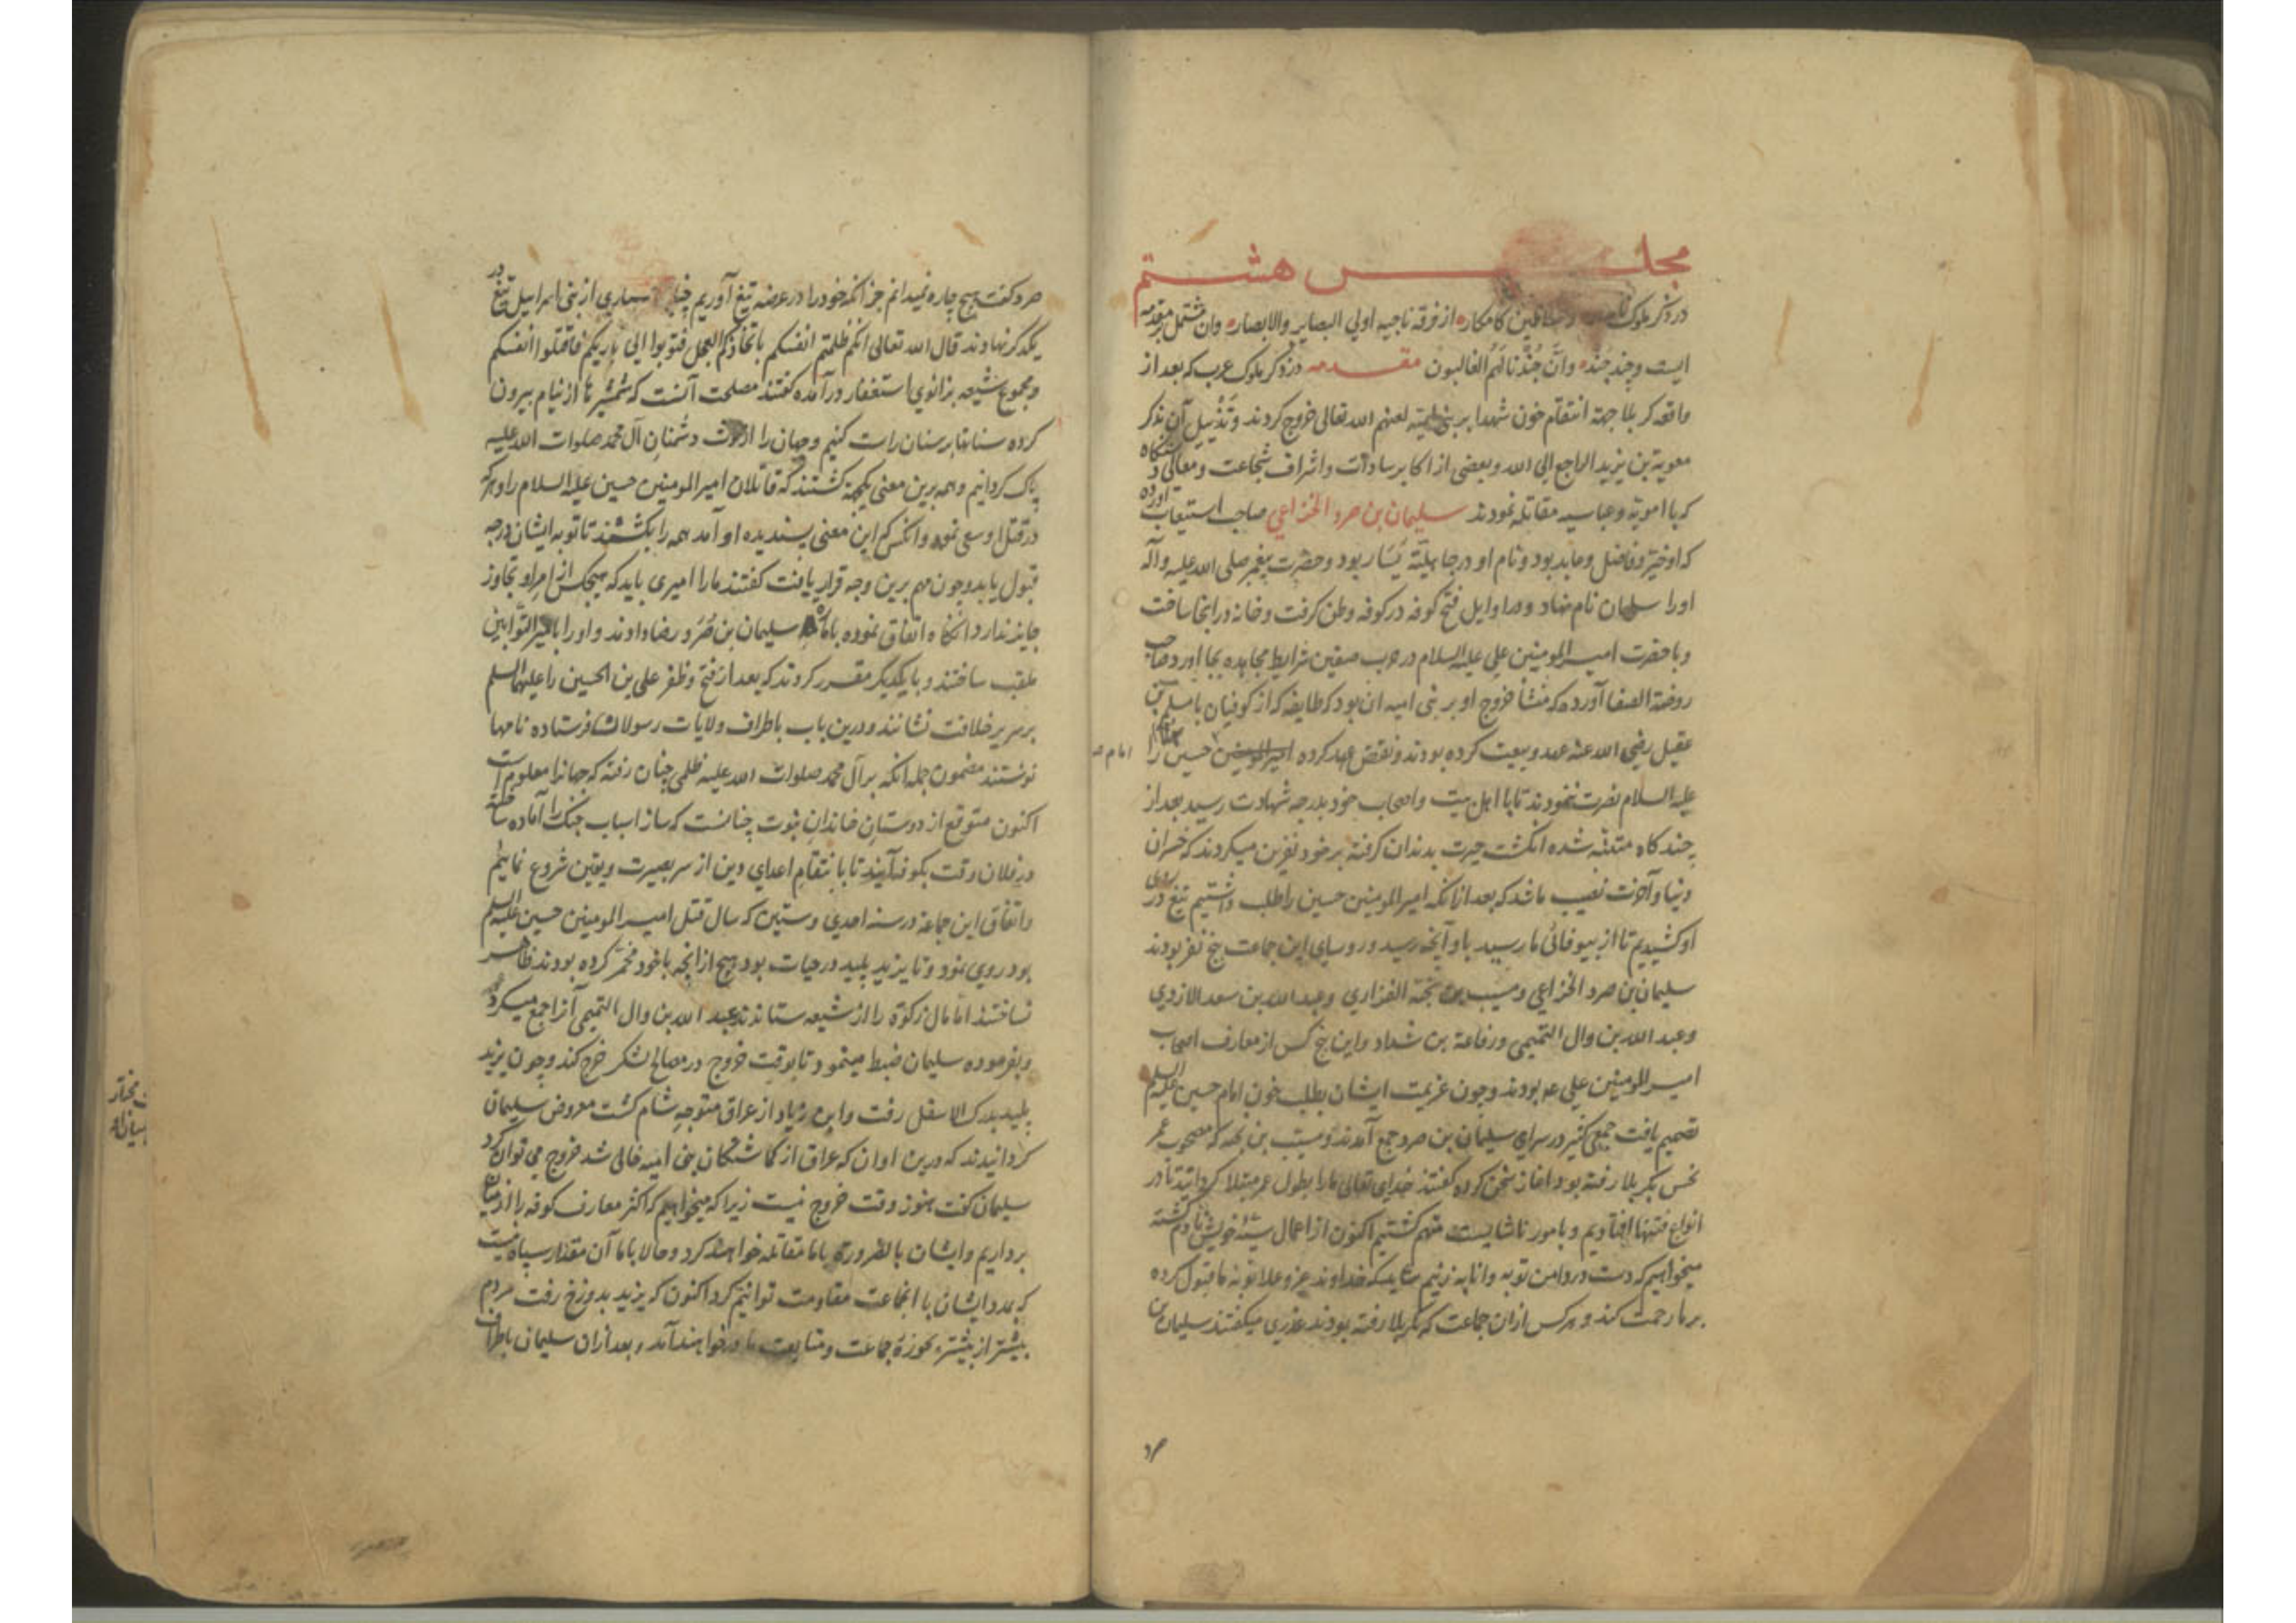 مجلس هشتم
در ذکر ملوک و سلاطین کامکار از فرقه ناجیه اولی البصایر والابصار وان مشتمل بر مقدمه
ایست و چند جند وانّ جندنا لهم الغالبون مقدمه در ذکر ملوک عرب که بعد از
واقعه کربلا جهة انتقام خون شهدا بر بنی امیه لعنهم الله تعالی خروج کردند و تذییل آن بذکر
معویة بن یزید الراجع الی الله و بعضی از اکابر سادات و اشراف شجاعت و معالی دستگاه
که با امویه و عباسیه مقاتله نمودند سلیمان بن صرد الخزاعی صاحب استیعاب آورده
که او خیّر و فاضل و عابد بود و نام او در جاهلیّة یسار بود و حضرت پیغمبر صلی الله علیه وآله
او را سلیمان نام نهاد و در اوایل فتح کوفه در کوفه وطن کرفت و خانه در انجا ساخت
و با حضرت امیر المومنین علی علیه السلام در حرب صفین شرایط مجاهده بجا اورد و صاحب
روضة الصفا آورده که منشأ خروج او بر بنی امیه ان بود که طایفه که از کوفیان با مسلم بن
عقیل رضی الله عنه عهد و بیعت کرده بودند و نقض عهد کرده امیر المومنین حسین را
علیه السلام نصرت ننمودند تا با اهل بیت و اصحاب خود بدرجه شهادت رسید بعد از
چند کاه متنبّه شده انکشت حیرت بدندان کرفته بر خود نفرین میکردند که خسران
دنیا و آخرت نصیب ما شد که بعد از انکه امیر المومنین حسین را طلب داشتیم تیغ در روی
او کشیدیم تا از بیوفائی ما رسید باو آنچه رسید و روسای این جماعت پنج نفر بودند
سلیمان بن صرد الخزاعی و مسیب بن نجبة الفزاری و عبد الله بن سعد الازدی
و عبد الله بن وال التمیمی و رفاعة بن شداد و این پنج کس از معارف اصحاب
امیر المومنین علی عم بودند و چون عزیمت ایشان بطلب خون امام حسین علیه السلم
تصمیم یافت جمعی کثیر در سرای سلیمان بن صرد جمع آمدند و مسیّب بن نجبه که مصحوب عمر
نحس بکربلا رفته بود اغاز سخن کرده کفتند خدای تعالی ما را بطول عمر مبتلا کردانید تا در
انواع فتنها افتادیم و بامور ناشایست متهم کشتیم اکنون از اعمال سیئه خویش نادم کشته
میخواهیم که دست در دامن توبه و انابه زنیم شاید که خداوند عز و علا توبه ما قبول کرده
بر ما رحمت کند و هر کس از ان جماعت که بکربلا رفته بودند عذری میکفتند سلیمان بن
صرد
صرد کفت هیچ چاره نمیدانم جز آنکه خود را در عرضه تیغ آوریم چنانچه بسیاری از بنی اسراییل تیغ در
یکدکر نهادند قال الله تعالی انکم ظلمتم انفسکم باتخاذکم العجل فتوبوا الی بارئکم فاقتلوا انفسکم
و مجموع شیعه بزانوی استغفار در آمده کفتند مصلحت آنست که شمشیرها از نیام بیرون
کرده سنانها بر سنان راست کنیم و جهان را از لوث دشمنان آل محمد صلوات الله علیه
پاک کردانیم و همه برین معنی یکجهة کشتند که قاتلان امیر المومنین حسین علیه السلام را و هر که
در قتل او سعی نموده و انکس که این معنی پسندیده او آمد همه را بکشند تا توبه ایشان درجه
قبول یابد و چون مهم برین وجه قرار یافت کفتند ما را امیری باید که هیچکس از امر او تجاوز
جایز ندارد انکاه اتفاق نموده بامارت سلیمان بن صُرَد رضا دادند و او را بامیر التوّابین
ملقب ساختند و با یکدیکر مقرر کردند که بعد از فتح و ظفر علی بن الحسین را علیهما السلم
بر سریر خلافت نشانند و درین باب باطراف ولایات رسولان فرستاده نامها
نوشتند مضمون جمله انکه بر آل محمد صلوات الله علیه ظلمی چنان رفته که جهانرا معلوم است
اکنون متوقع از دوستان خاندان نبوت چنانست که ساز اسباب جنک را آماده ساخته
در فلان وقت بکوفه آیند تا بانتقام اعدای دین از سر بصیرت و یقین شروع نماییم
و اتفاق این جماعة در سنه احدی و ستین که سال قتل امیر المومنین حسین علیه السلم
بود روی نمود و تا یزید پلید در حیات بود هیچ از انچه با خود مخمّر کرده بودند ظاهر
نساختند اما مال زکوة را از شیعه ستانده عبد الله بن وال التمیمی آنرا جمع میکرد
و بفرموده سلیمان ضبط مینمود تا بوقت خروج در مصالح لشکر خرج کند و چون یزید
پلید بدرک الاسفل رفت و ابن زیاد از عراق متوجه شام کشت معروض سلیمان
کردانیدند که درین اوان که عراق از کماشتکان بنی امیه خالی شد خروج می توان کرد
سلیمان کفت هنوز وقت خروج نیست زیرا که میخواهیم که اکثر معارف کوفه را از میان
برداریم و ایشان بالضروره با ما مقاتله خواهند کرد و حالا با ما آن مقدار سپاه نیست
که بمدد ایشان با انجماعت مقاومت توانیم کرد اکنون که یزید بدوزخ رفت مردم
بیشتر از پیشتر بحوزه جماعت و متابعت ما در خواهند آمد و بعد از ان سلیمان باطراف